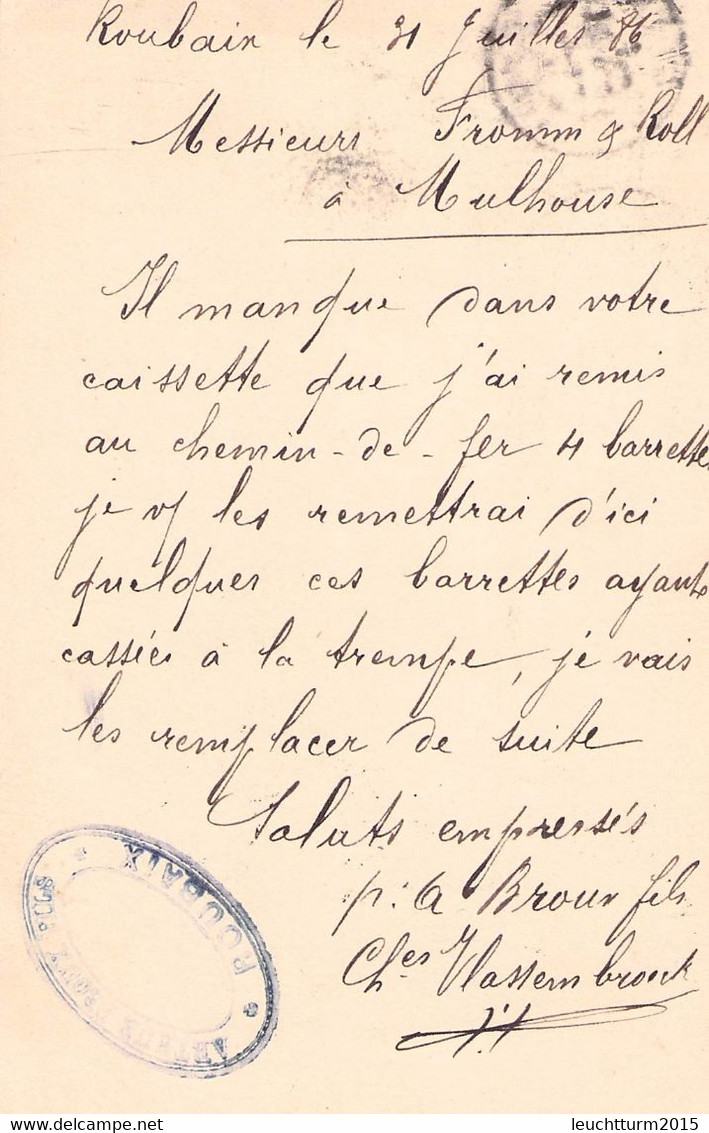 Roubaix le 31 Juillet 86
Messieurs Fromm & Koll
à Mulhouse
Il manque dans votre
caissette que j'ai remis
au chemin-de-fer 4 barrettes
je vs les remettrai d'ici
quelques ces barrettes ayant
cassées à la trempe, je vais
les remplacer de suite
Saluts empressés
p: A Broux fils
Ches Hassembrouck
ROUBAIX
FILS
leuchtturm2015